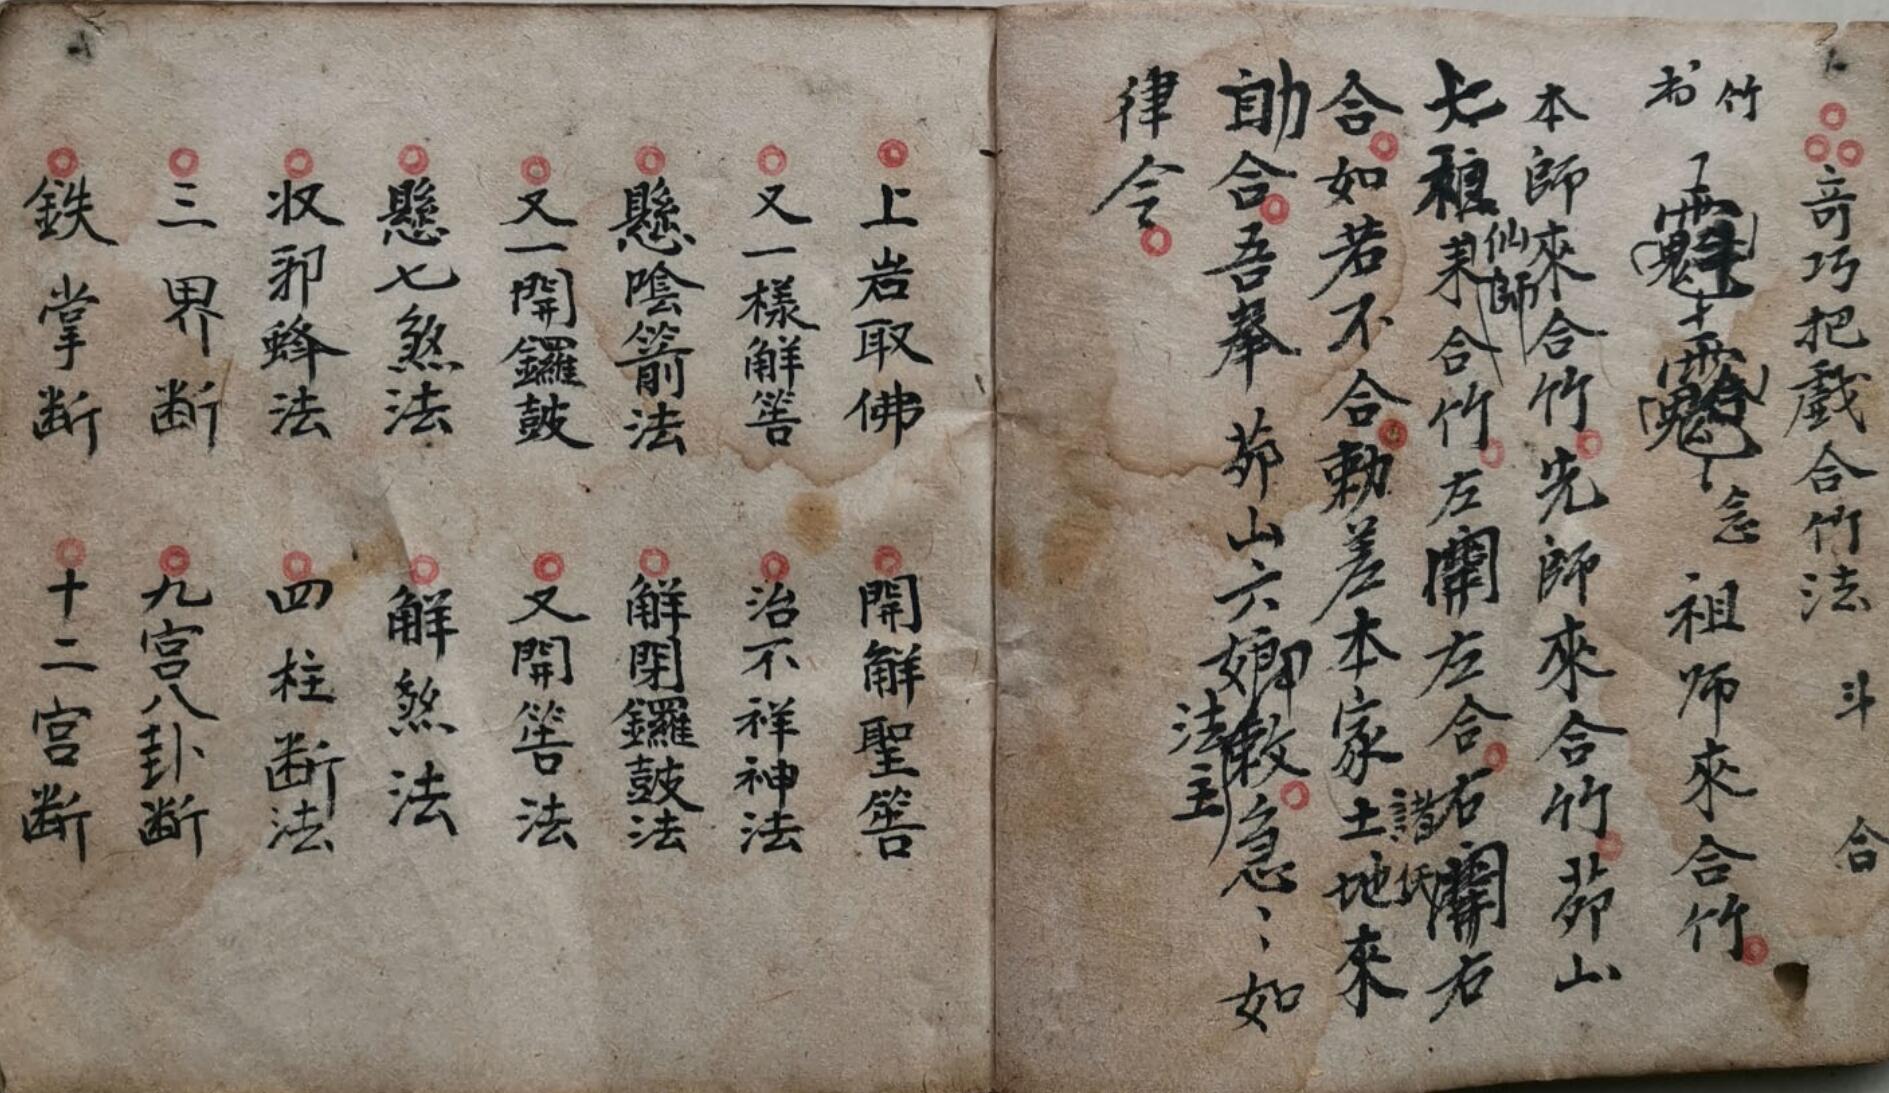 奇巧把戲合竹法 斗 合
竹
书 念 祖师來合竹
本師來合竹先師來合竹茆山
七祖仙師來合竹左開左合右開右
合如若不合勅差本家土地來
助合吾奉茆山六娘法主敕急〻如
律令
上岩取佛 開解聖筶
又一樣解筶 治不祥神法
懸陰箭法 解閉鑼鼓法
又一開鑼鼓 又開筶法
懸七煞法 解煞法
收邪蜂法 四柱断法
三界断 九宮八卦断
鉄掌断 十二宮断